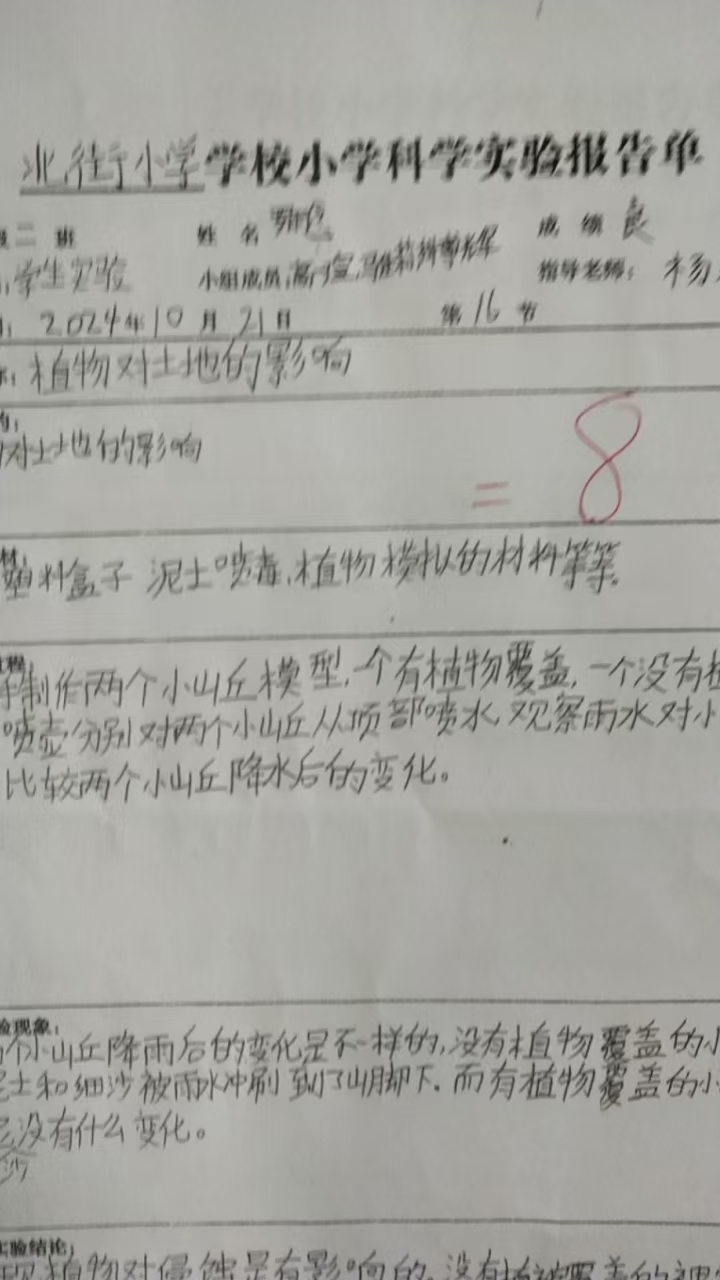 北街小学学校小学科学实验报告单
二 班 姓 名 成 绩 良
学生实验 小组成员 指导老师: 杨
2024年10月21日 第16节
植物对土地的影响
对土地的影响
= 8
塑料盒子 泥土喷毒,植物模拟的材料等等.
制作两个小山丘模型,个有植物覆盖,一个没有植
喷壶分别对两个小山丘从顶部喷水,观察雨水对小
比较两个小山丘降水后的变化。
验现象:
个小山丘降雨后的变化是不一样的,没有植物覆盖的小
泥土和细沙被雨水冲刷到了山脚下.而有植物覆盖的小
没有什么变化。
沙
实验结论:
植物对侵蚀是有影响的,没有植被覆盖的